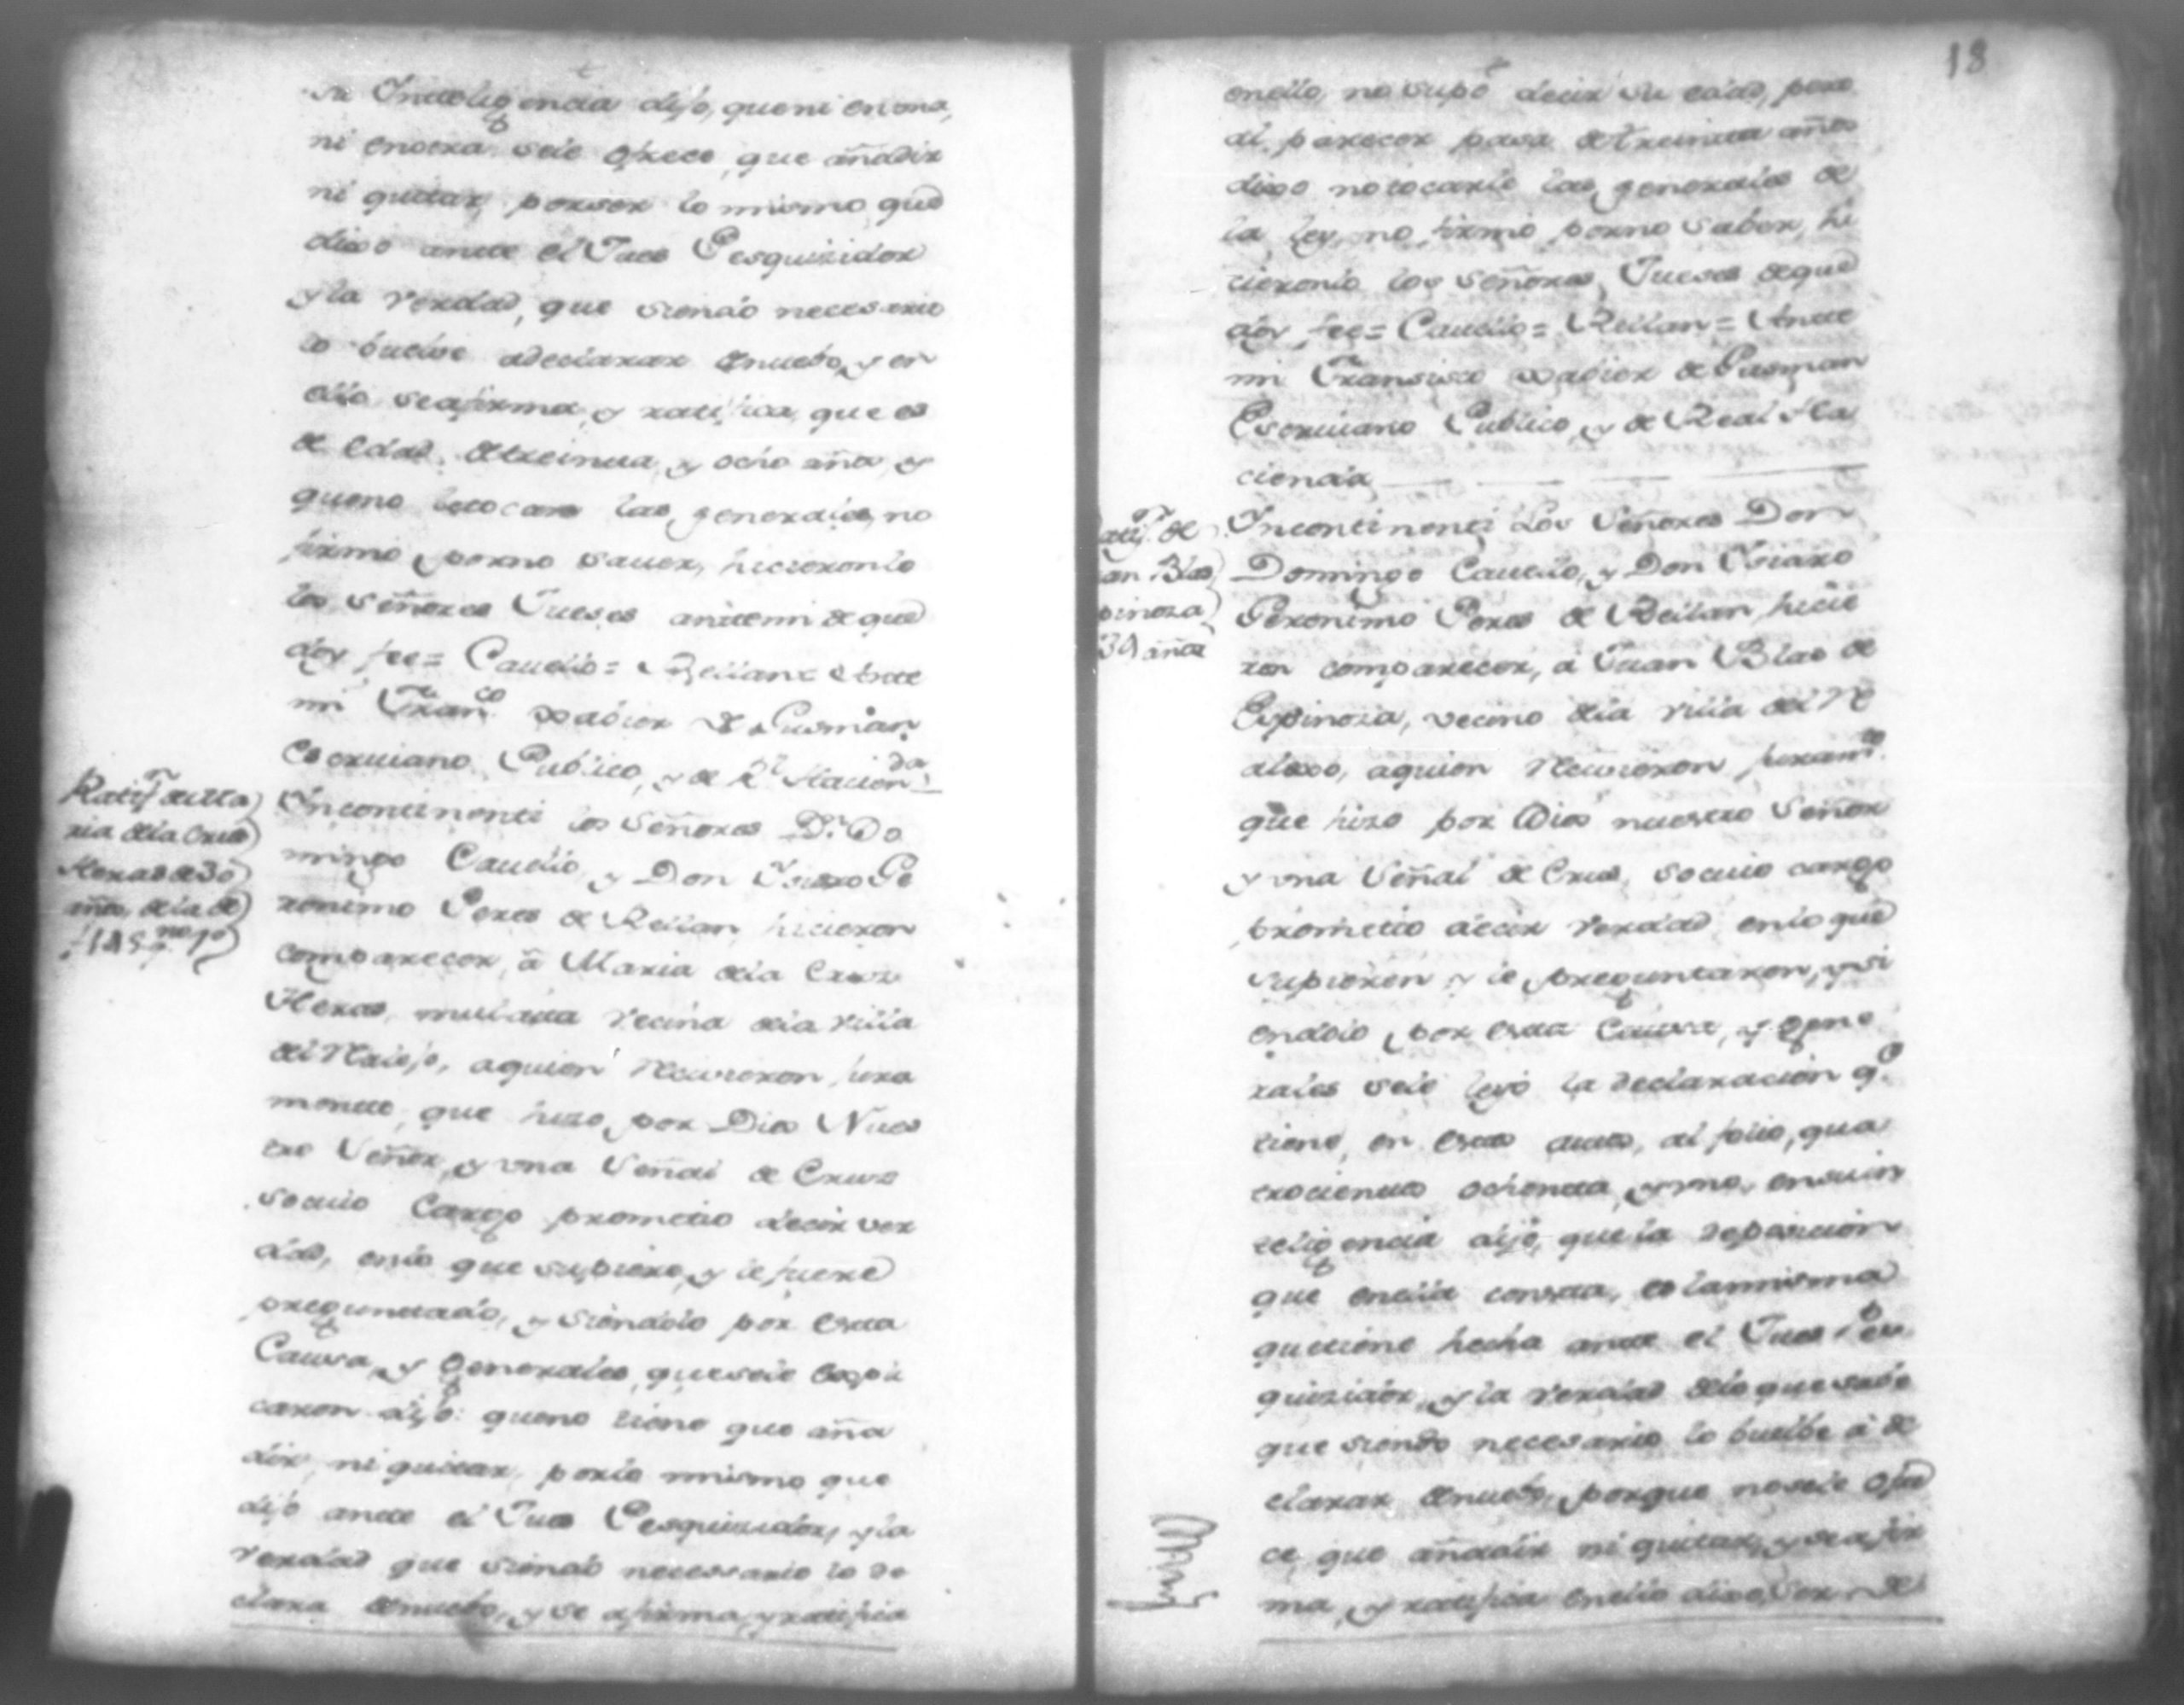 su Intteligencia dijo, que ni en una,
ni en otra sele ofrece, que añadir
ni quitar, porser lo mismo que
dixo antte el Jues Pesquizidor
y la verdad, que siendo necesario
lo buelve adeclarar denuebo, y en
ello seafirma, y ratifica, que es
de edad detreintta, y ocho años, y
queno letocan las generales, no
firmo porno saver, hicieronlo
los señores Jueses anttemi de que
doy fee= Cauello= Rellan= Antte
mi Franco. Xabier de Gusman
Escruiano Publico, y de Rl. Haciennda
Ratifn. de Ma
ria dela Crus
Heras de 30
años, dela de
f 185
Incontinenti los Señores Dn. Do
mingo Cauello, y Don Isidro Ge
ronimo Peres de Rellan hicieron
comparecer, â Maria dela Cruz
Heras, mulatta vecina dela villa
del Realejo, aquien Recivieron jura
mentte, que hizo por Dios Nues
tro Señor, y una Señal de Cruz
socuio cargo prometio decir ver
dad, enlo que supiere, y lefuere
preguntado, y siendolo por estta
Causa, y Generales, quesele
caron dijo: queno tiene que aña
dir, ni quitar, porlo mismo que
dijo antte el Jues Pesquizidor, y la
verdad que siendo necessario lo de
clara denuebo, y se afirma, y ratifica
18
enello, no supo decir su edad, pero
al parecer pasa detreintta años
dixo notocarle las generales de
la ley, no firmo porno saber, hi
cieronlo los señores Jueses deque
doy fee= Cauello= Rellan= Antte
mi Fransisco Xabier de Gusman
Escruiano Publico, y de Real Ha
cienda
atifn. de
an Blas
pinoza
39 años
Incontinenti Los Señores Don
Domingo Cauello, y Don Isidro
Geronimo Peres de Rellan hicie
ron comparecer, a Juan Blas de
Espinoza, vecino dela villa del Re
alexo, aquien Recivieron juramto.
que hizo por Dios nuestro Señor
y una Señal de Crus, socuio cargo
prometio decir verdad enlo que
supieren y le preguntaren, y si
endolo por estta Causa, y Gene
rales sele leyó la declaracion qe.
tiene, en esttos auttos, al folio, qua
trocienttos ochentta, y uno, ensuin
teligencia dijo, quela deposicion
que enella constta, es lamisma
quetiene hecha antte el Jues Pes
quizidor, y la verdad delo que save
que siendo necesario lo buelbe á de
clarar denuebo, porque nosele ofre
ce que añadir ni quitar, y seafir
ma, y ratifica enello dixo, ser de